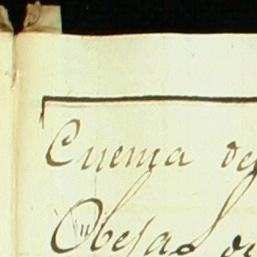 Cuenta de
Obejas de